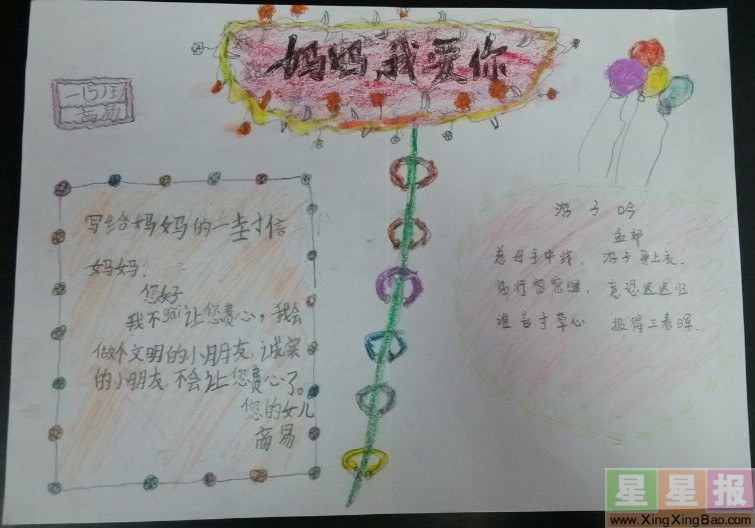 妈妈,我爱你
一(5)班
商易
写给妈妈的一封信
妈妈:
您好
我不 让您费心,我会
做个文明的小朋友,诚实
的小朋友,不会让您费心了。
您的女儿
商易
游子吟
孟郊
慈母手中线,游子身上衣.
临行密密缝,意恐迟迟归
谁言寸草心 报得三春晖.
星星报
www.XingXingBao.com